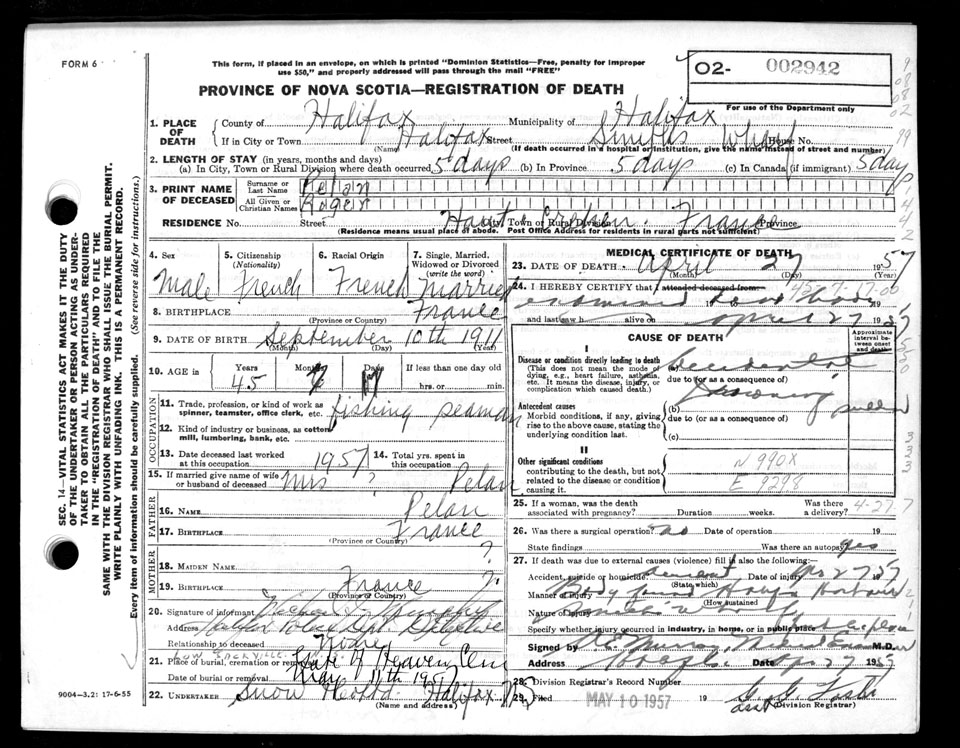 FORM 6
This form, if placed in an envelope, on which is printed "Dominion Statistics—Free, penalty for improper
use $50," and properly addressed will pass through the mail "FREE"
O2- 002942
PROVINCE OF NOVA SCOTIA—REGISTRATION OF DEATH
For use of the Department only
1. PLACE OF DEATH
County of Halifax Municipality of Halifax
If in City or Town Halifax Street Smiths Wharf House No.
(Name) (If death occurred in a hospital or institution, give the name instead of street and number)
2. LENGTH OF STAY (in years, months and days)
(a) In City, Town or Rural Division where death occurred 5 days (b) In Province 5 days (c) In Canada (if immigrant) 5 days
3. PRINT NAME OF DECEASED
Surname or Last Name Pelan
All Given or Christian Names Roger
RESIDENCE No. Street City Town or Rural Division France Province
(Residence means usual place of abode. Post Office Address for residents in rural parts not sufficient)
4. Sex Male
5. Citizenship (Nationality) French
6. Racial Origin French
7. Single, Married, Widowed or Divorced (write the word) Married
8. BIRTHPLACE France
(Province or Country)
9. DATE OF BIRTH September 10th 1911
(Month) (Day) (Year)
10. AGE in Years 45 Months 7 Days 17 If less than one day old
hrs. or min.
OCCUPATION
11. Trade, profession, or kind of work as spinner, teamster, office clerk, etc. fishing seaman
12. Kind of industry or business, as cotton mill, lumbering, bank, etc.
13. Date deceased last worked at this occupation 1957
14. Total yrs. spent in this occupation
15. If married give name of wife or husband of deceased Mrs ? Pelan
FATHER
16. NAME Pelan
17. BIRTHPLACE France
(Province or Country)
MOTHER
18. MAIDEN NAME ?
19. BIRTHPLACE France ?
(Province or Country)
20. Signature of informant
Address Halifax Police Dept. Detective
Relationship to deceased None
LOW SACKVILLE
21. Place of burial, cremation or removal Gate of Heaven Cem
Date of burial or removal May 11th 1957
22. UNDERTAKER Snow Halifax N.S.
(Name and address)
9004—3.2: 17-6-55
SEC. 14—VITAL STATISTICS ACT MAKES IT THE DUTY
OF THE UNDERTAKER OR PERSON ACTING AS UNDER-
TAKER TO OBTAIN ALL THE PARTICULARS REQUIRED
IN THE "REGISTRATION OF DEATH" AND TO FILE THE
SAME WITH THE DIVISION REGISTRAR WHO SHALL ISSUE THE BURIAL PERMIT.
WRITE PLAINLY WITH UNFADING INK. THIS IS A PERMANENT RECORD.
Every item of information should be carefully supplied. (See reverse side for instructions.)
MEDICAL CERTIFICATE OF DEATH
23. DATE OF DEATH April 27 1957
(Month) (Day) (Year)
24. I HEREBY CERTIFY that I attended deceased from:
examined dead body 19
and last saw h alive on April 27 1957
CAUSE OF DEATH
Approximate interval between onset and death
I
Disease or condition directly leading to death
(This does not mean the mode of dying, e.g., heart failure, asthenia, etc. It means the disease, injury, or complication which caused death.)
Accidental
due to (or as a consequence of)
Antecedent causes
Morbid conditions, if any, giving rise to the above cause, stating the underlying condition last.
(b) Drowning sudden
due to (or as a consequence of)
(c)
II
Other significant conditions
contributing to the death, but not related to the disease or condition causing it.
N 990X
E 9298
25. If a woman, was the death associated with pregnancy? Duration weeks. Was there a delivery?
4-27-7
26. Was there a surgical operation? no Date of operation 19
State findings Was there an autopsy yes
27. If death was due to external causes (violence) fill in also the following:
Accident, suicide or homicide Accident Date of injury Apr 27 1957
(State which)
Manner of injury Body found Halifax Harbour
(How sustained)
Nature of injury
Specify whether injury occurred in industry, in home, or in public place Public place
Signed by M.D.
Address Halifax Date Apr 27 1957
28. Division Registrar's Record Number
29. Filed MAY 10 1957 19
(Division Registrar)